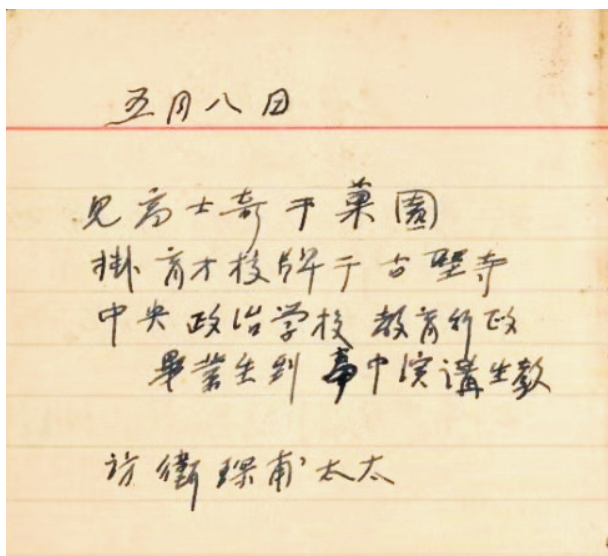 五月八日
见高士奇于菓園
掛育才校牌于古聖寺
中央政治学校 教育行政
畢業生到 中演講生教
访衛琛甫太太